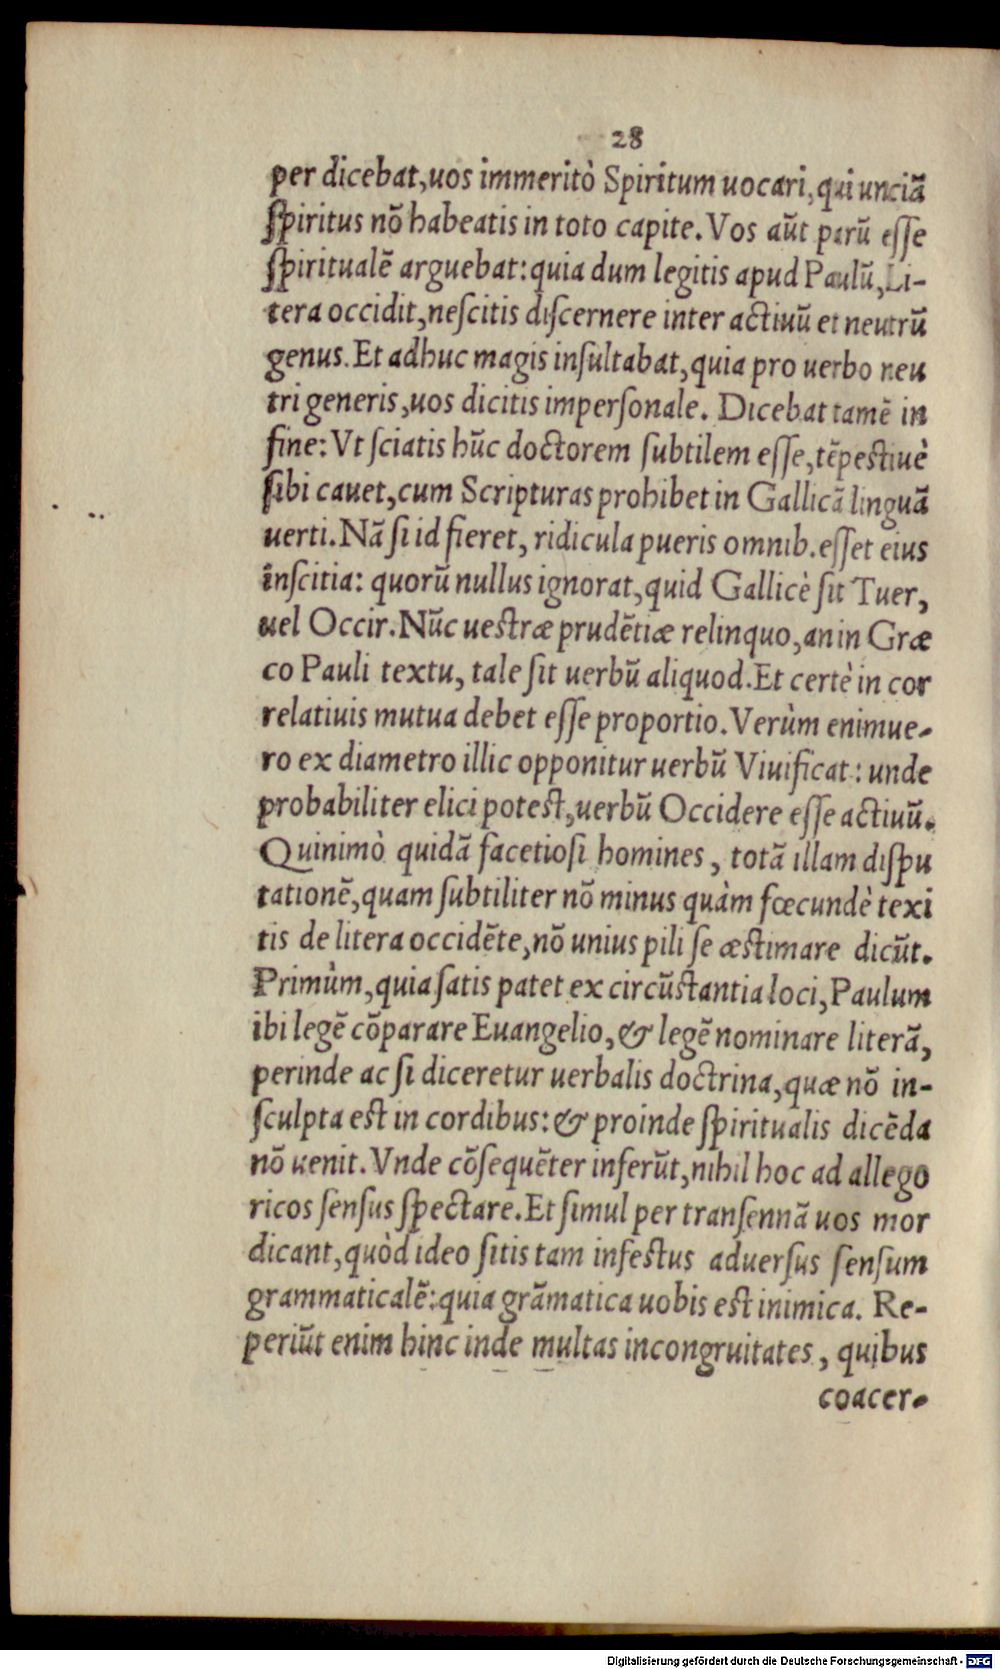 28
per dicebat, uos immeritò Spiritum uocari, qui unciã
ſpiritus nõ habeatis in toto capite. Vos aũt parũ eſſe
ſpiritualẽ arguebat: quia dum legitis apud Paulũ, Li-
tera occidit, neſcitis diſcernere inter actiuũ et neutrũ
genus. Et adhuc magis inſultabat, quia pro uerbo neu
tri generis, uos dicitis imperſonale. Dicebat tamẽ in
fine: Vt ſciatis hũc doctorem ſubtilem eſſe, tẽpestiuè
ſibi cauet, cum Scripturas prohibet in Gallicã linguã
uerti. Nã ſi id fieret, ridicula pueris omnib. eſſet eius
inſcitia: quorũ nullus ignorat, quid Gallicè ſit Tuer,
uel Occir. Nũc uestræ prudẽtiæ relinquo, an in Græ
co Pauli textu, tale ſit uerbũ aliquod. Et certè in cor
relatiuis mutua debet eſſe proportio. Verùm enimue-
ro ex diametro illic opponitur uerbũ Viuificat: unde
probabiliter elici potest, uerbũ Occidere eſſe actiuũ.
Quinimò quidã facetioſi homines, totã illam diſpu
tationẽ, quam ſubtiliter nõ minus quàm fœcundè texi
tis de litera occidẽte, nõ unius pili ſe æstimare dicũt.
Primùm, quia ſatis patet ex circũstantia loci, Paulum
ibi legẽ cõparare Euangelio, & legẽ nominare literã,
perinde ac ſi diceretur uerbalis doctrina, quæ nõ in-
ſculpta est in cordibus: & proinde ſpiritualis dicẽda
nõ uenit. Vnde cõſequẽter inferũt, nihil hoc ad allego
ricos ſenſus ſpectare. Et ſimul per tranſennã uos mor
dicant, quòd ideo ſitis tam infestus aduerſus ſenſum
grammaticalẽ: quia grãmatica uobis est inimica. Re-
periũt enim hinc inde multas incongruitates, quibus
coacer-
Digitalisierung gefördert durch die Deutsche Forschungsgemeinschaft - DFG